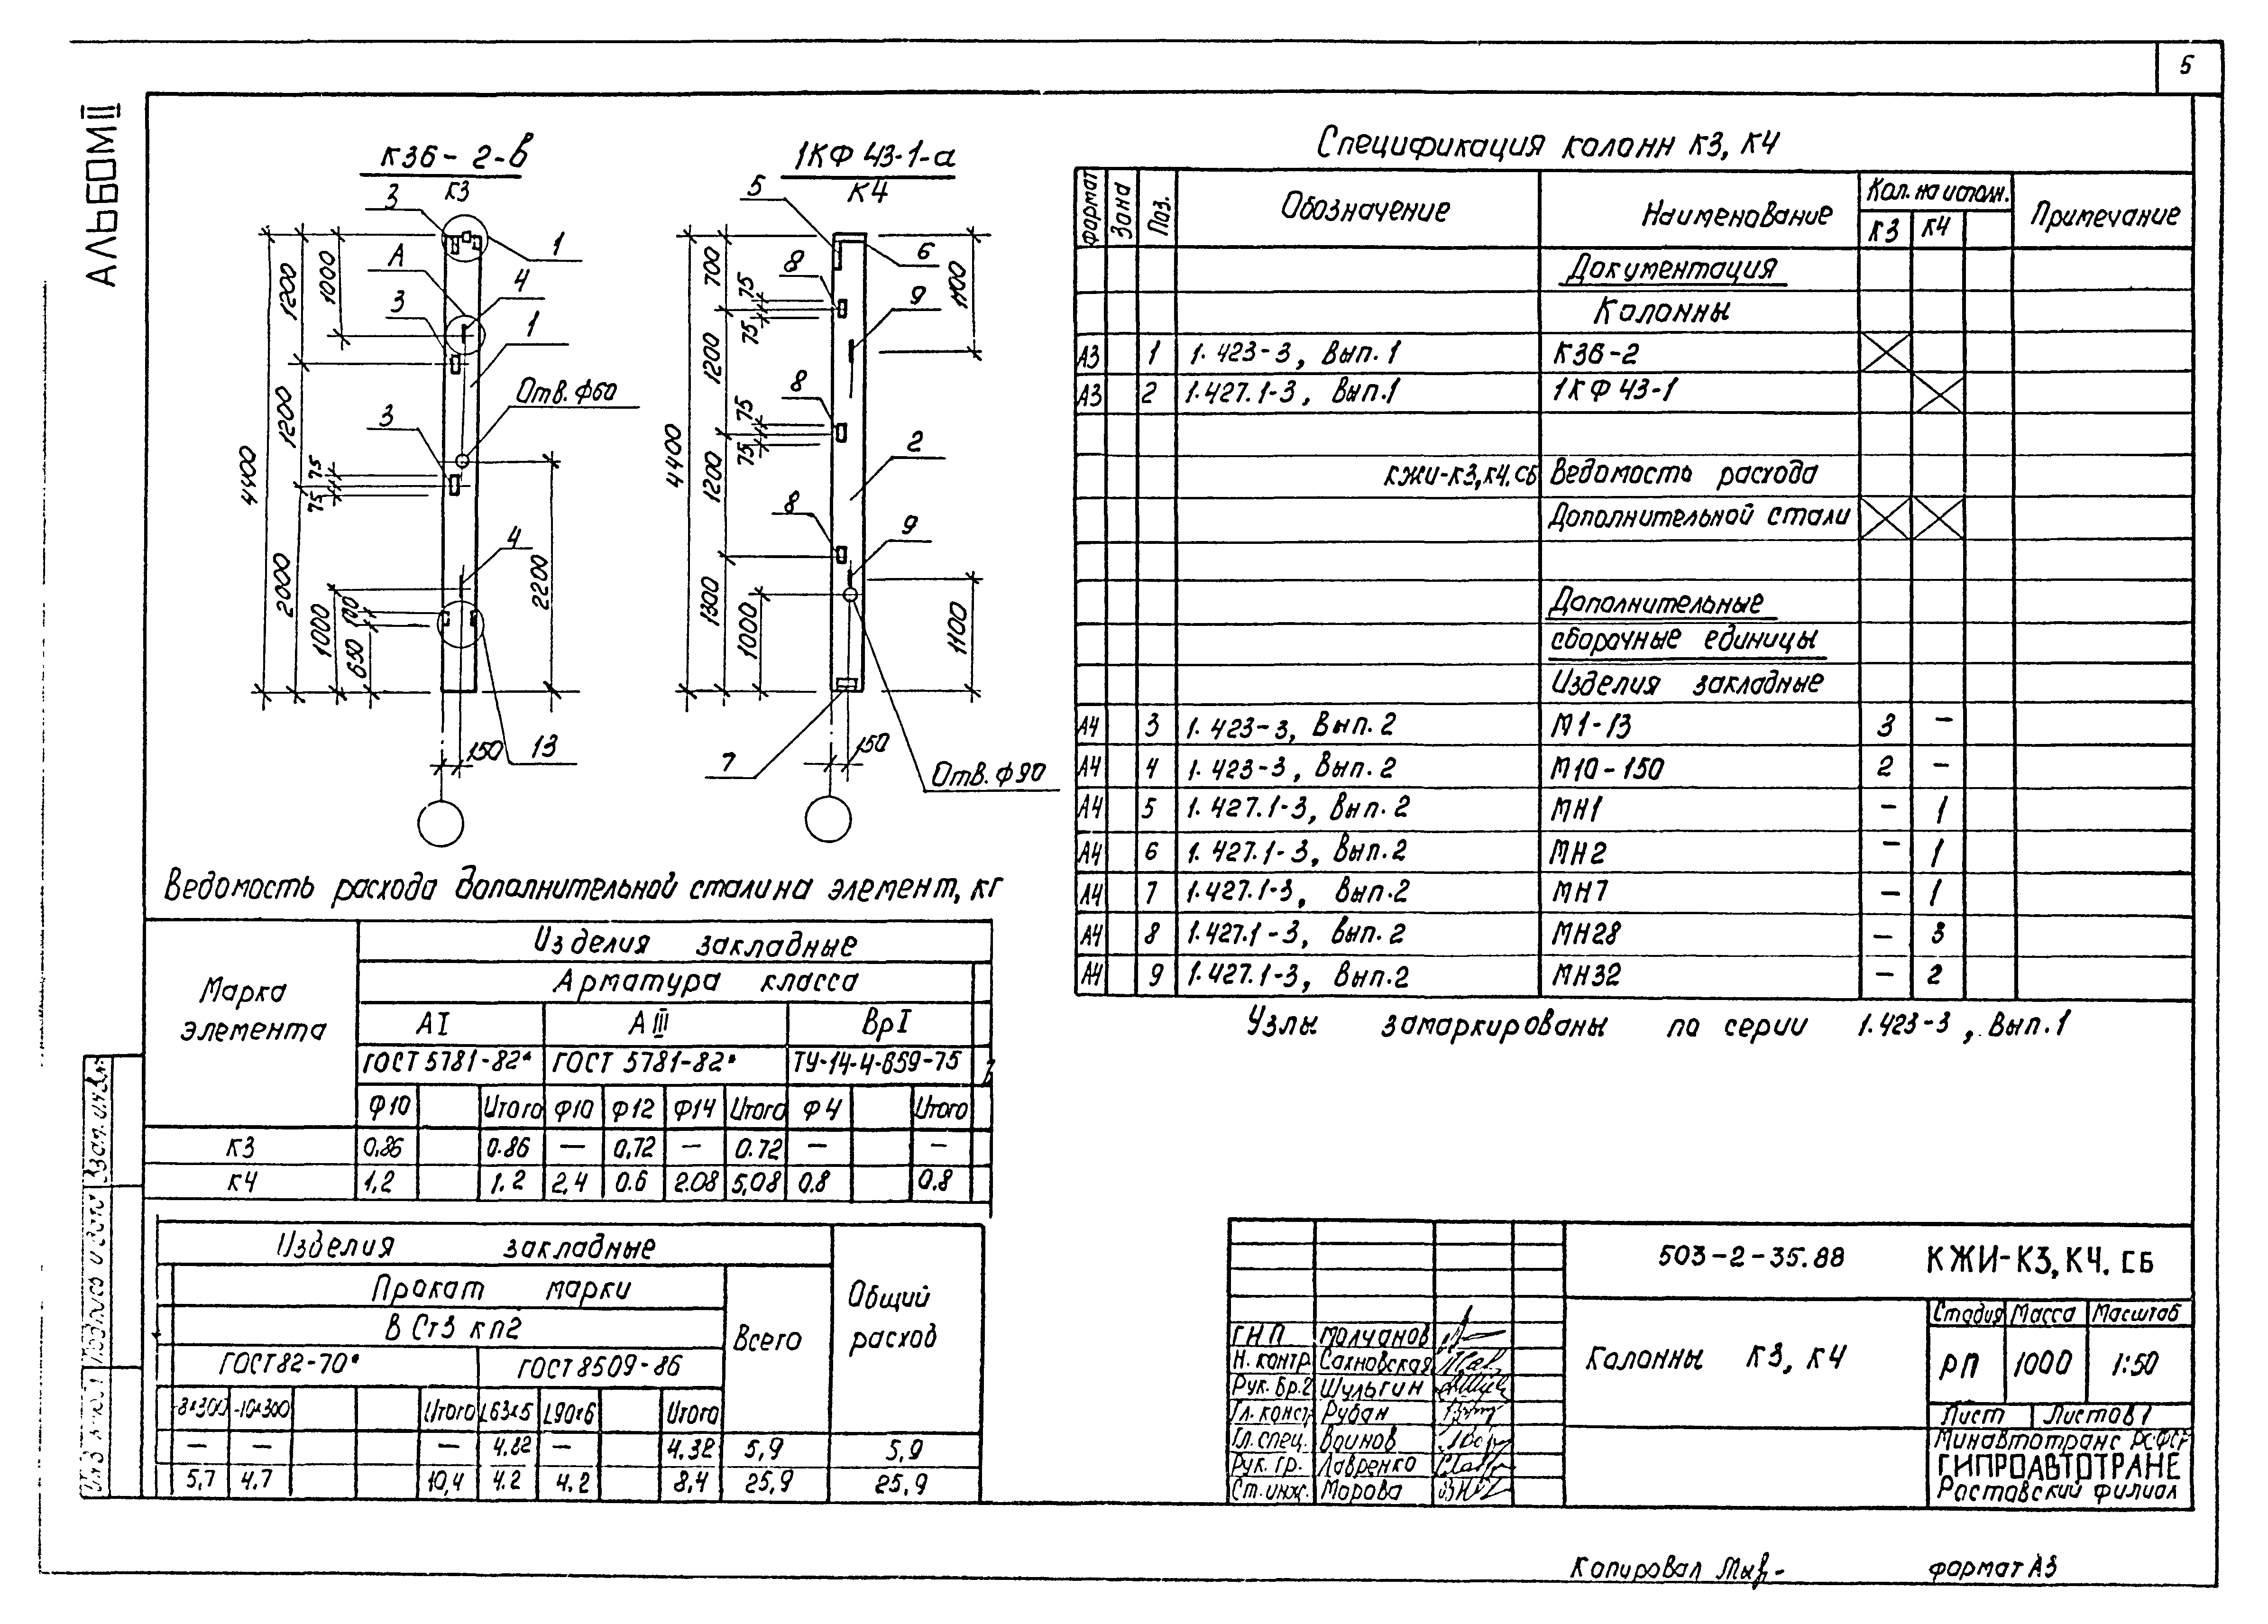 5
АЛЬБОМ III
К36-2-в
К3
3
1
А
4
3
1
Отв. Ф60
3
4
13
4400
1200
1200
2000
1000
75
75
1000
100
650
2200
150
1КФ 43-1-а
К4
5
6
8
9
8
2
8
9
7
Отв. Ф90
4400
700
1200
1200
1300
75
75
75
75
1000
1100
1100
150
Спецификация колонн К3, К4
формат Зона Поз. Обозначение Наименование Кол. на исполн. Примечание
К3 К4
Документация
Колонны
А3 1 1.423-3, Вып.1 К36-2
А3 2 1.427.1-3, Вып.1 1КФ 43-1
КЖИ-К3,К4.СБ Ведомость расхода
Дополнительной стали
Дополнительные
сборочные единицы
Изделия закладные
А4 3 1.423-3, Вып.2 М1-13 3 –
А4 4 1.423-3, Вып.2 М10-150 2 –
А4 5 1.427.1-3, Вып.2 МН1 – 1
А4 6 1.427.1-3, Вып.2 МН2 – 1
А4 7 1.427.1-3, Вып.2 МН7 – 1
А4 8 1.427.1-3, Вып.2 МН28 – 3
А4 9 1.427.1-3, Вып.2 МН32 – 2
Узлы замаркированы по серии 1.423-3, Вып.1
Ведомость расхода дополнительной стали на элемент, кг
Марка элемента
Изделия закладные
Арматура класса
АI АIII ВрI
ГОСТ 5781-82* ГОСТ 5781-82* ТУ-14-4-659-75
Ф10 Итого Ф10 Ф12 Ф14 Итого Ф4 Итого
К3 0,86 0.86 – 0,72 – 0.72 – –
К4 1,2 1.2 2,4 0.6 2.08 5,08 0.8 0.8
Изделия закладные
Прокат марки
В Ст3 кп2
Всего
Общий расход
ГОСТ 82-70* ГОСТ 8509-86
-8х300 -10х300 Итого L63х5 L90х6 Итого
– – – 4.82 – 4.32 5,9 5,9
5,7 4.7 10,4 4.2 4,2 8,4 25,9 25,9
503-2-35.88 КЖИ-К3, К4. СБ
Колонны К3, К4
Стадия Масса Масштаб
РП 1000 1:50
Лист Листов 1
Минавтотранс РСФСР
ГИПРОАВТОТРАНС
Ростовский филиал
ГНП Молчанов
Н. контр Сахновская
Рук. бр.2 Шульгин
Гл. констр Рубан
Гл. спец. Воинов
Рук. гр. Лавренко
Ст. инж. Морова
Взам. инв. №
Подпись и дата
Копировал
формат А3